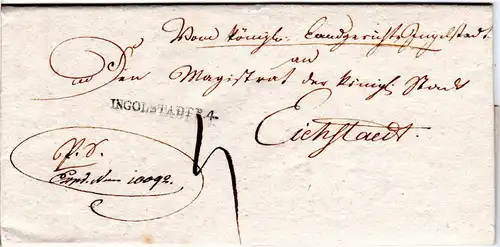 Vom königl: Landgerichte Ingolstadt
an
Den Magistrat der königl: Stadt
INGOLSTADT R.4.
Eichstaedt.
P. S.
Expd. Num 10092.